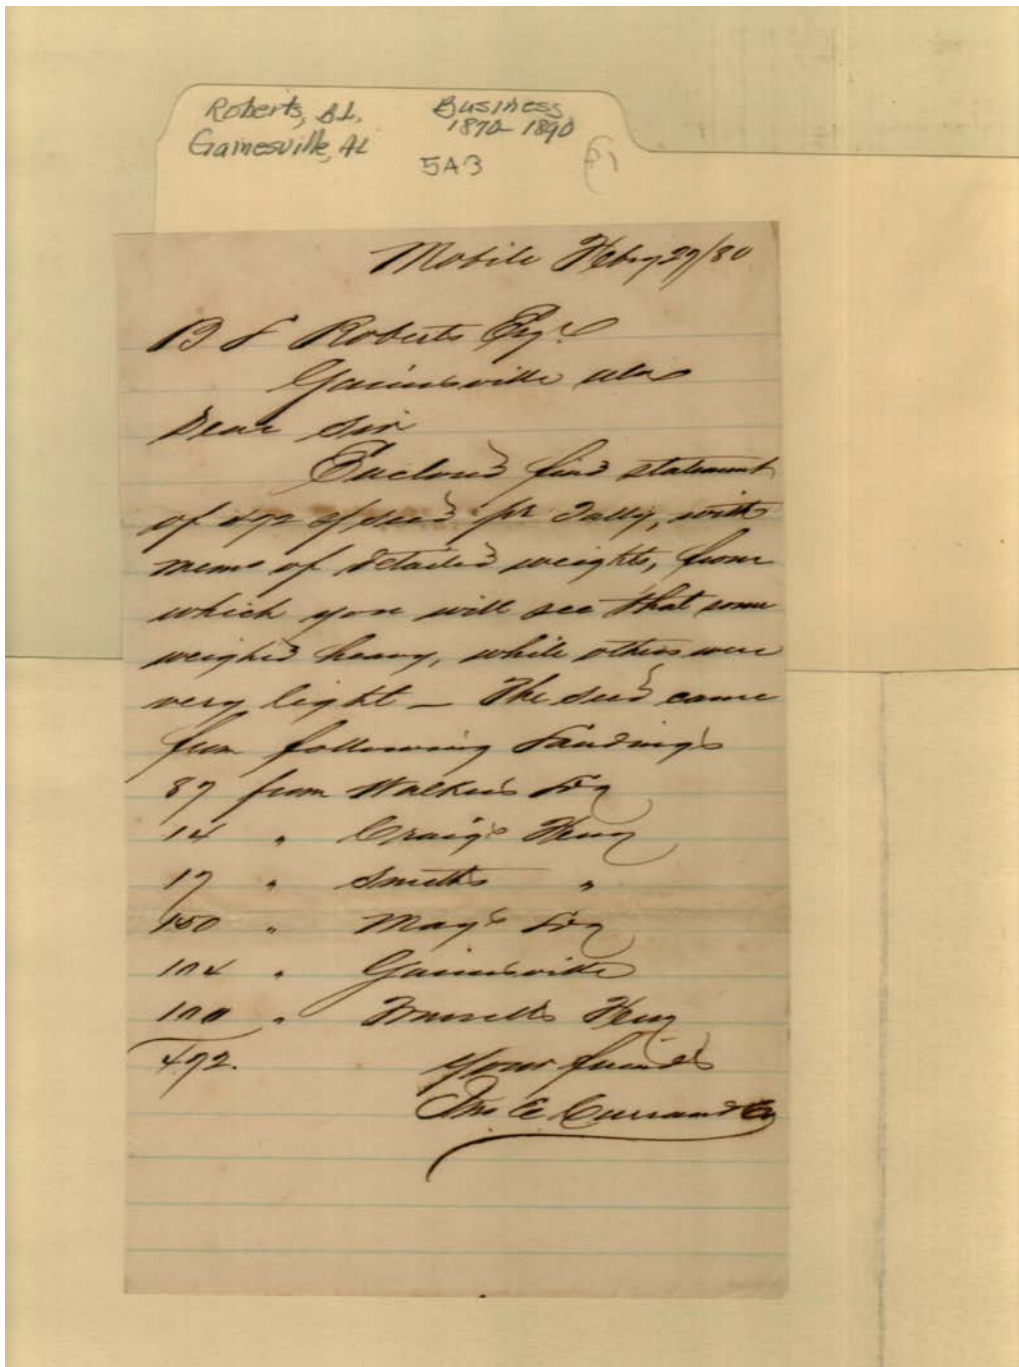 Roberts, B.L. Business
Gainesville, AL 1870-1890
5A3
Mobile Feby 27/80
B F Roberts Esqr
Gainesville Ala
Dear Sir
Enclosed find statement
of 472 s/seed pr Tally, with
memo of detailed weights, from
which you will see that some
weighed heavy, while others were
very light — The seed came
from following Landings
87 from Walkers Ldg
14 " Craigs Ferry
17 " Smiths "
150 " Mays Ldg
104 " Gainesville
100 " Ferry
472.
Your friends
Jno E Curran & Co